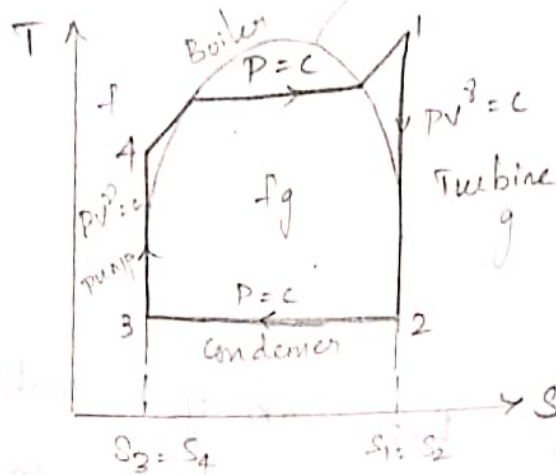 T
Boiler
1
P = C
f
PV^γ = C
4
Turbine
fg
g
PV^γ = C
pump
P = C
3
2
Condenser
S
S3 = S4
S1 = S2